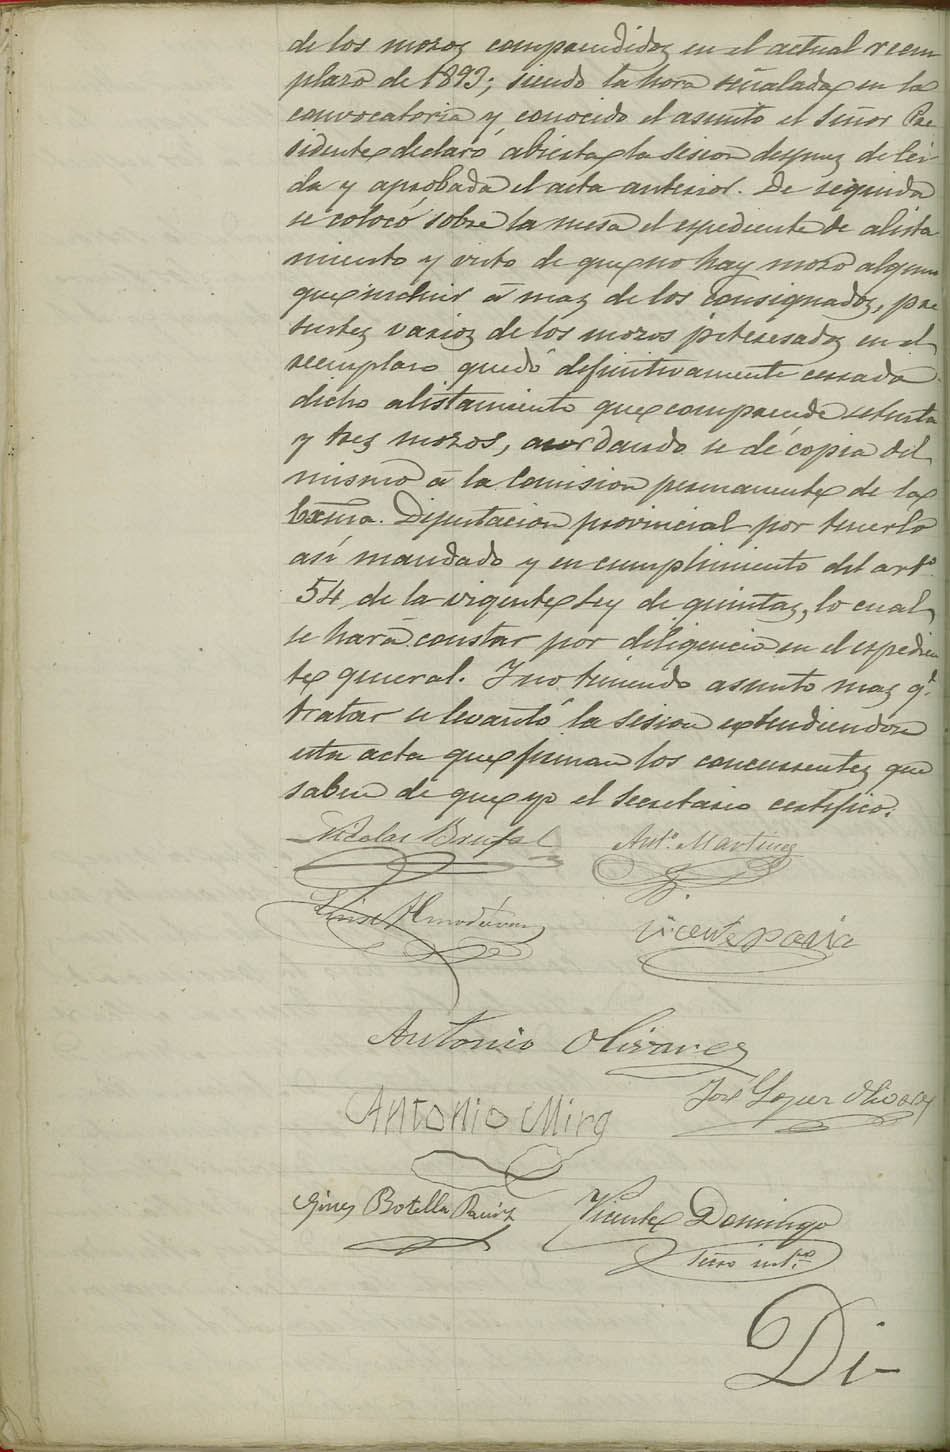 de los mozos comprendidos en el actual reem
plazo de 1893; siendo la hora señalada en la
convocatoria y conocido el asunto el Señor Pre
sidente declaró abierta la sesion despues de lei
da y aprobada el acta anterior. De seguida
se colocó sobre la mesa el espediente de alista
miento y visto de que no hay mozo alguno
que incluir á mas de los consignados, pre
sentes varios de los mozos interesados en el
reemplazo quedó definitivamente cerrado
dicho alistamiento que comprende setenta
y tres mozos, acordando se dé copia del
mismo á la Comision permanente de la
Exma. Diputacion provincial por tenerlo
así mandado y en cumplimiento del artº.
54 de la vigente Ley de quintas, lo cual
se hará constar por diligencia en el espedien
te general. Y no teniendo asunto mas q.
tratar se levantó la sesion extendiendose
esta acta que firman los concurrentes que
saben de que yo el Secretario certifico.
Nicolas Brufal Antº. Martinez
Almodóvar Vicente Pavia
Antonio Olivares
José Lopez Olivares
Antonio Mira
Gines Botella Vicente Domingo
Srio intº.
Di-